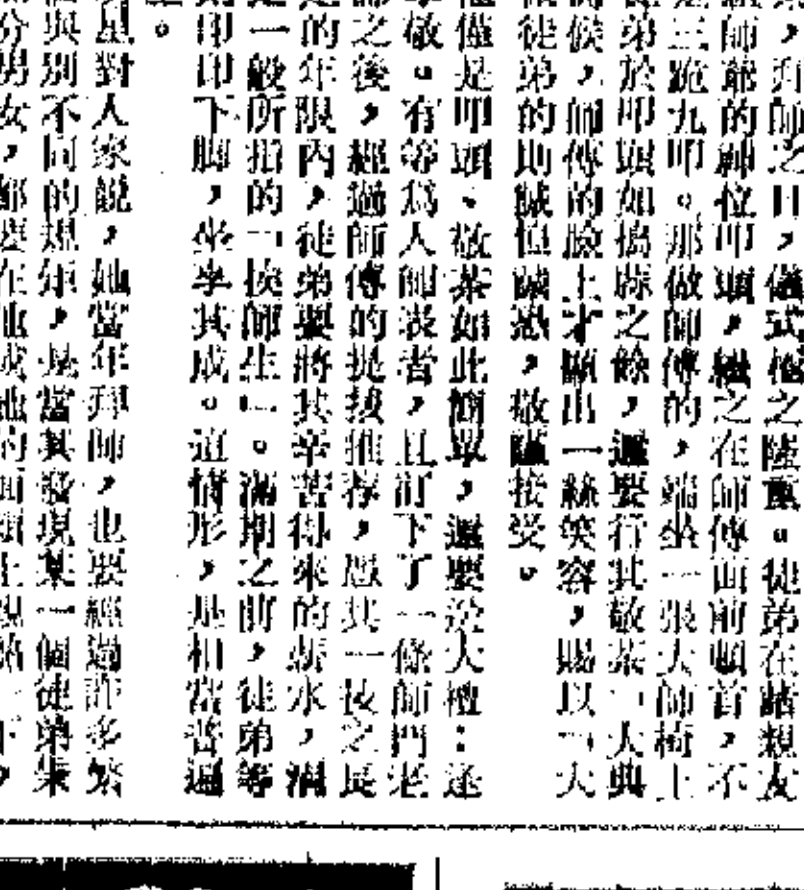 ，拜師之日，儀式極之隆重。徒弟在諸親友
師爺的神位叩頭，繼之在師傅面前頓首，不
三跪九叩。那做師傅的，端坐一張大師椅上
弟於叩頭如搗蒜之餘，還要行其敬茶「大典
候，師傅的臉上才顯出一絲笑容，賜以「大
徒弟的則誠惶誠恐，敬謹接受。
僅是叩頭、敬茶如此簡單，還要
敬。有等為人師表者，且訂下了一條師門
之後，經過師傅的提拔推荐，憑其一技之長
的年限內，徒弟要將其辛苦得來的薪水，
一般所指的「揼師生」。滿期之前，徒弟等
印印下脚，坐享其成。這情形，是相當普遍
。
星對人家說，她當年拜師，也要經過許多繁
與別不同的規矩，是當其發現某一個徒弟
分男女，都要在他或她的面